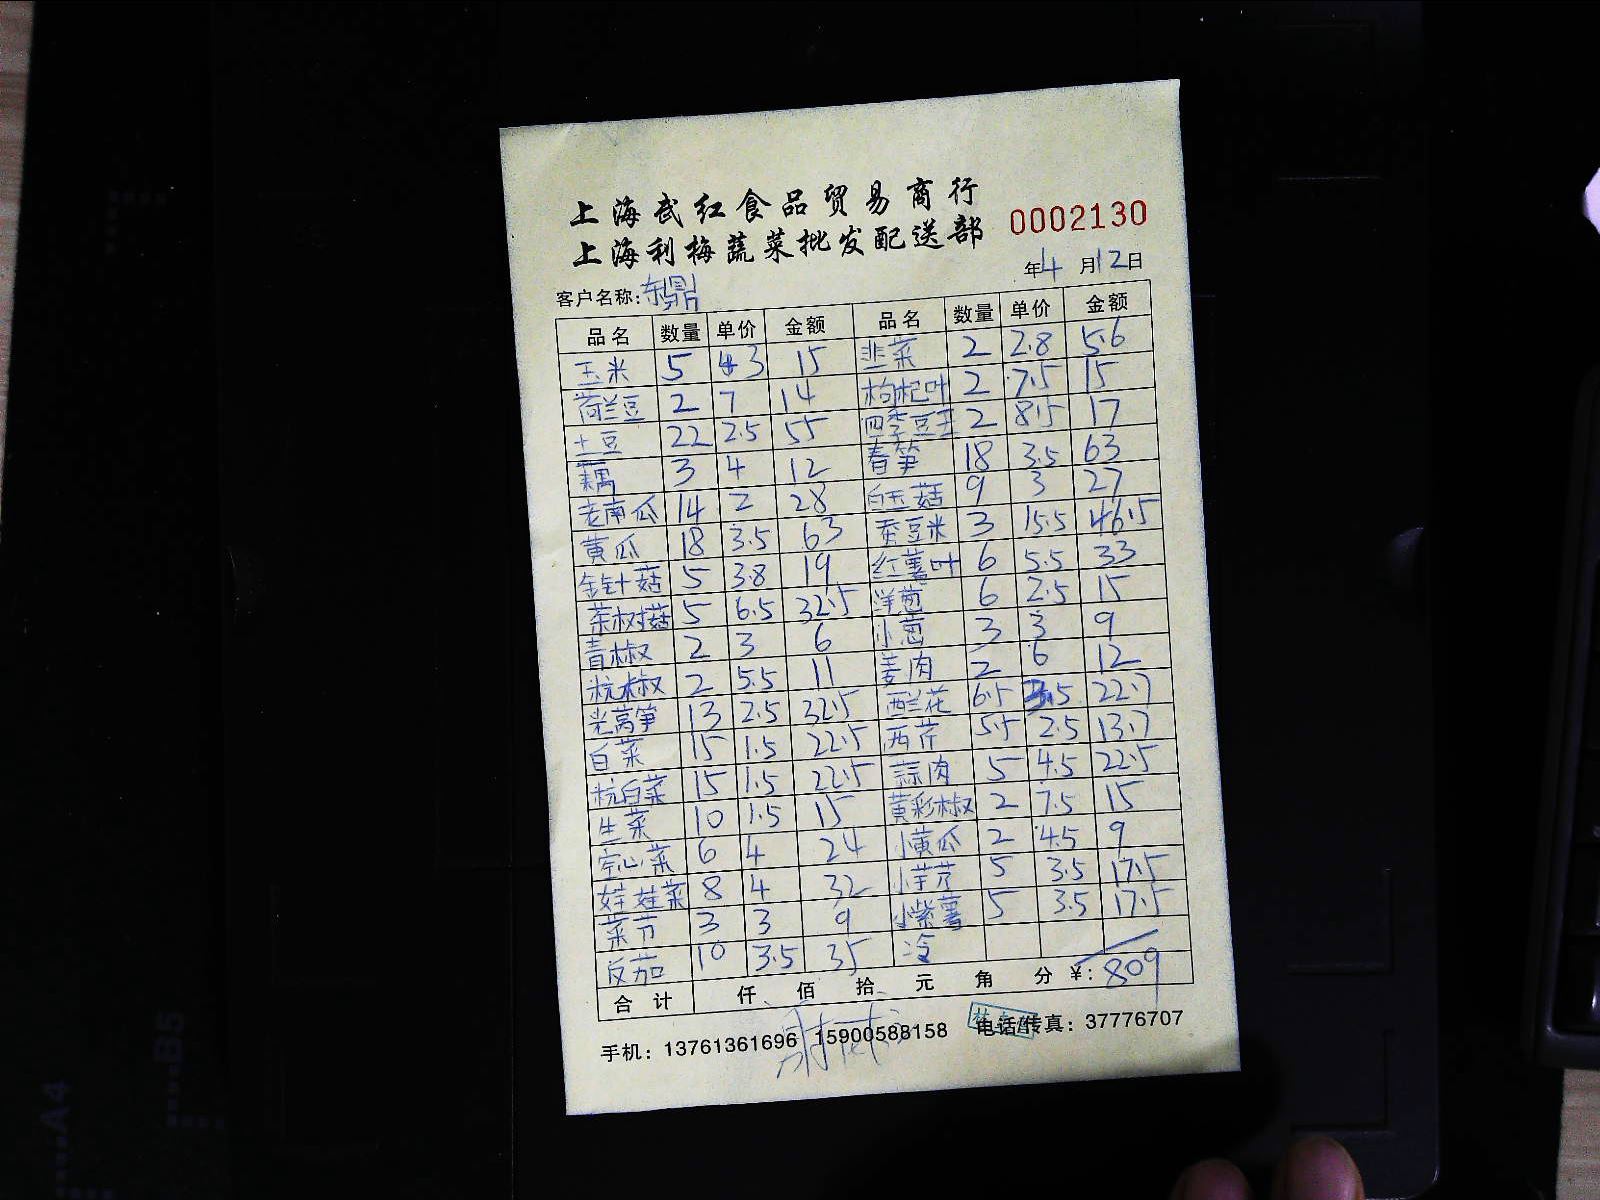 上海武红食品贸易商行
上海利梅蔬菜批发配送部
0002130
年4月12日
客户名称:东鼎
品名 数量 单价 金额 品名 数量 单价 金额
玉米 5 3 15 韭菜 2 2.8 5.6
荷兰豆 2 7 14 枸杞叶 2 7.5 15
土豆 22 2.5 55 四季豆王 2 8.5 17
藕 3 4 12 春笋 18 3.5 63
老南瓜 14 2 28 白玉菇 9 3 27
黄瓜 18 3.5 63 蚕豆米 3 15.5 46.5
金针菇 5 3.8 19 红薯叶 6 5.5 33
茶树菇 5 6.5 32.5 洋葱 6 2.5 15
青椒 2 3 6 小葱 3 3 9
杭椒 2 5.5 11 姜肉 2 6 12
光莴笋 13 2.5 32.5 西兰花 6.5 3.5 22.7
白菜 15 1.5 22.5 西芹 5.5 2.5 13.7
杭白菜 15 1.5 22.5 蒜肉 5 4.5 22.5
生菜 10 1.5 15 黄彩椒 2 7.5 15
空心菜 6 4 24 小黄瓜 2 4.5 9
娃娃菜 8 4 32 小芋艿 5 3.5 17.5
菜节 3 3 9 小紫薯 5 3.5 17.5
反茄 10 3.5 35 冷
合计 仟 佰 拾 元 角 分 ¥: 809
手机: 13761361696 15900588158 电话/传真: 37776707
B5
A4